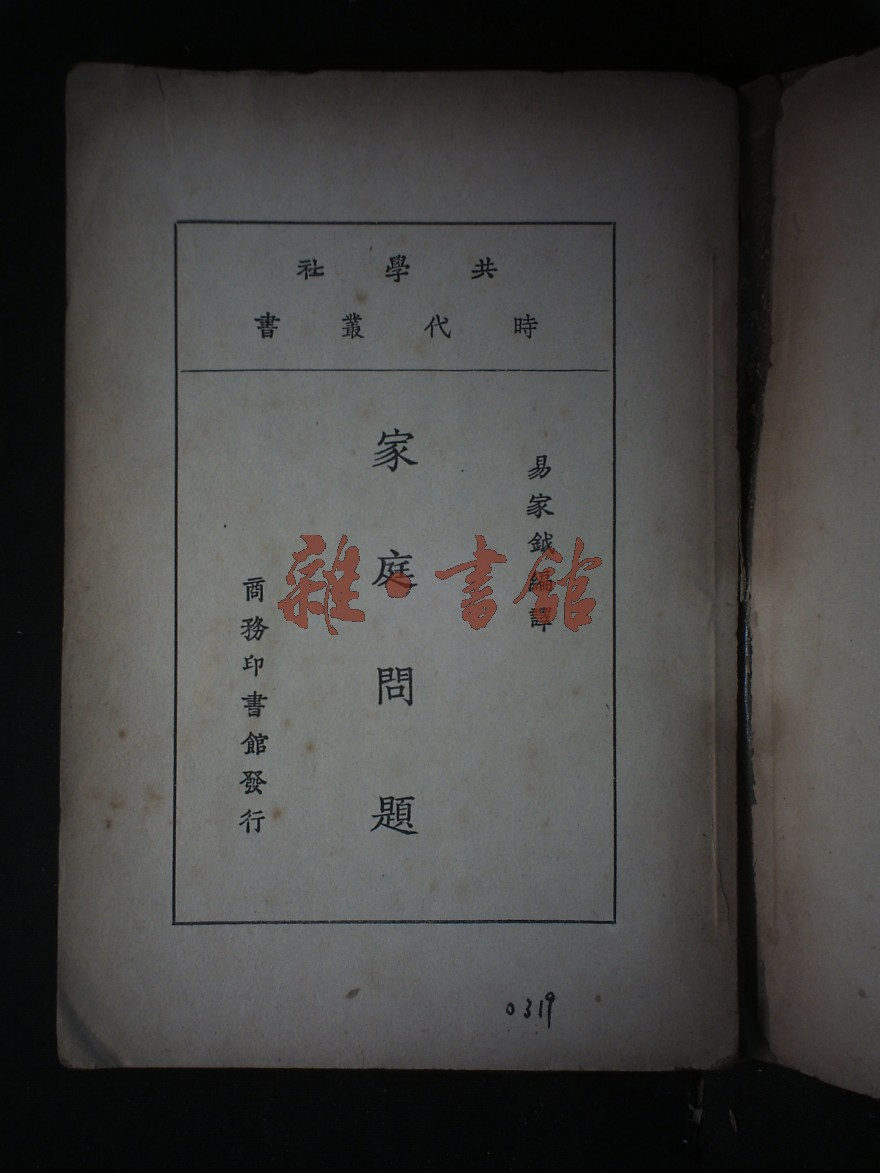 共學社
時代叢書
易家鉞編譯
家庭問題
商務印書館發行
雜·書館
0319